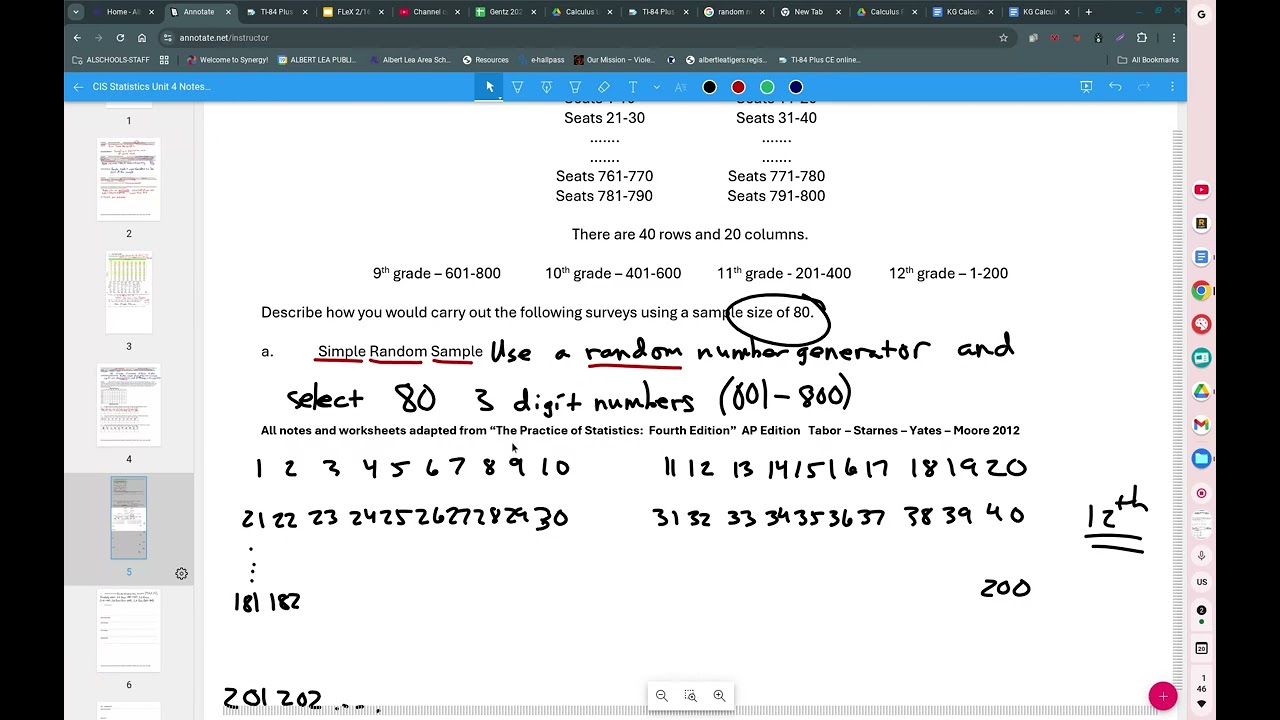 Home - Al
Annotate
TI-84 Plus
FLeX 2/16
Channel c
Gentz 202
Calculus
TI-84 Plus
random n
New Tab
Calculus
KG Calcu
KG Calcu
annotate.net/instructor
ALSCHOOLS-STAFF
Welcome to Synergy!
ALBERT LEA PUBLI...
Albert Lea Area Sch...
Resources
e-hallpass
Our Mission – Viole...
albertleatigers.regis...
TI-84 Plus CE online...
All Bookmarks
CIS Statistics Unit 4 Notes...
Seats 21-30 Seats 31-40
...... .......
....... .......
Seats 761-770 Seats 771-780
Seats 781-790 Seats 791-800
There are 40 rows and 20 columns
9th grade – 601-800 10th grade – 401-600 11th grade - 201-400 12th grade – 1-200
Describe how you would carry out the following surveys using a sample size of 80.
a. Simple Random Sample Use a random number generator and
select 80 3 digit numbers (001 - 800)
1 2 3 4 5 6 7 8 9 10 11 12 13 14 15 16 17 18 19 20
21 22 23 24 25 26 27 28 29 30 31 32 33 34 35 36 37 38 39 40
12th
181 182 200
201 202 ....
1
2
3
4
5
6
US
2
20
1
46